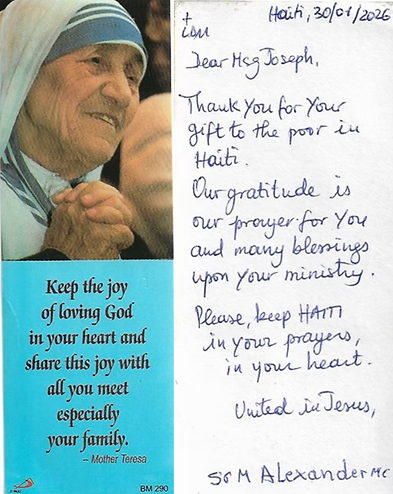 Keep the joy
of loving God
in your heart and
share this joy with
all you meet
especially
your family.
– Mother Teresa
BM 290
Haiti, 30/01/2026
Dear Msg Joseph,
Thank You for Your
gift to the poor in
Haiti.
Our gratitude is
our prayer for You
and many blessings
upon your ministry.
Please, keep HAITI
in your prayers,
in your heart.
United in Jesus,
Sr M Alexander MC